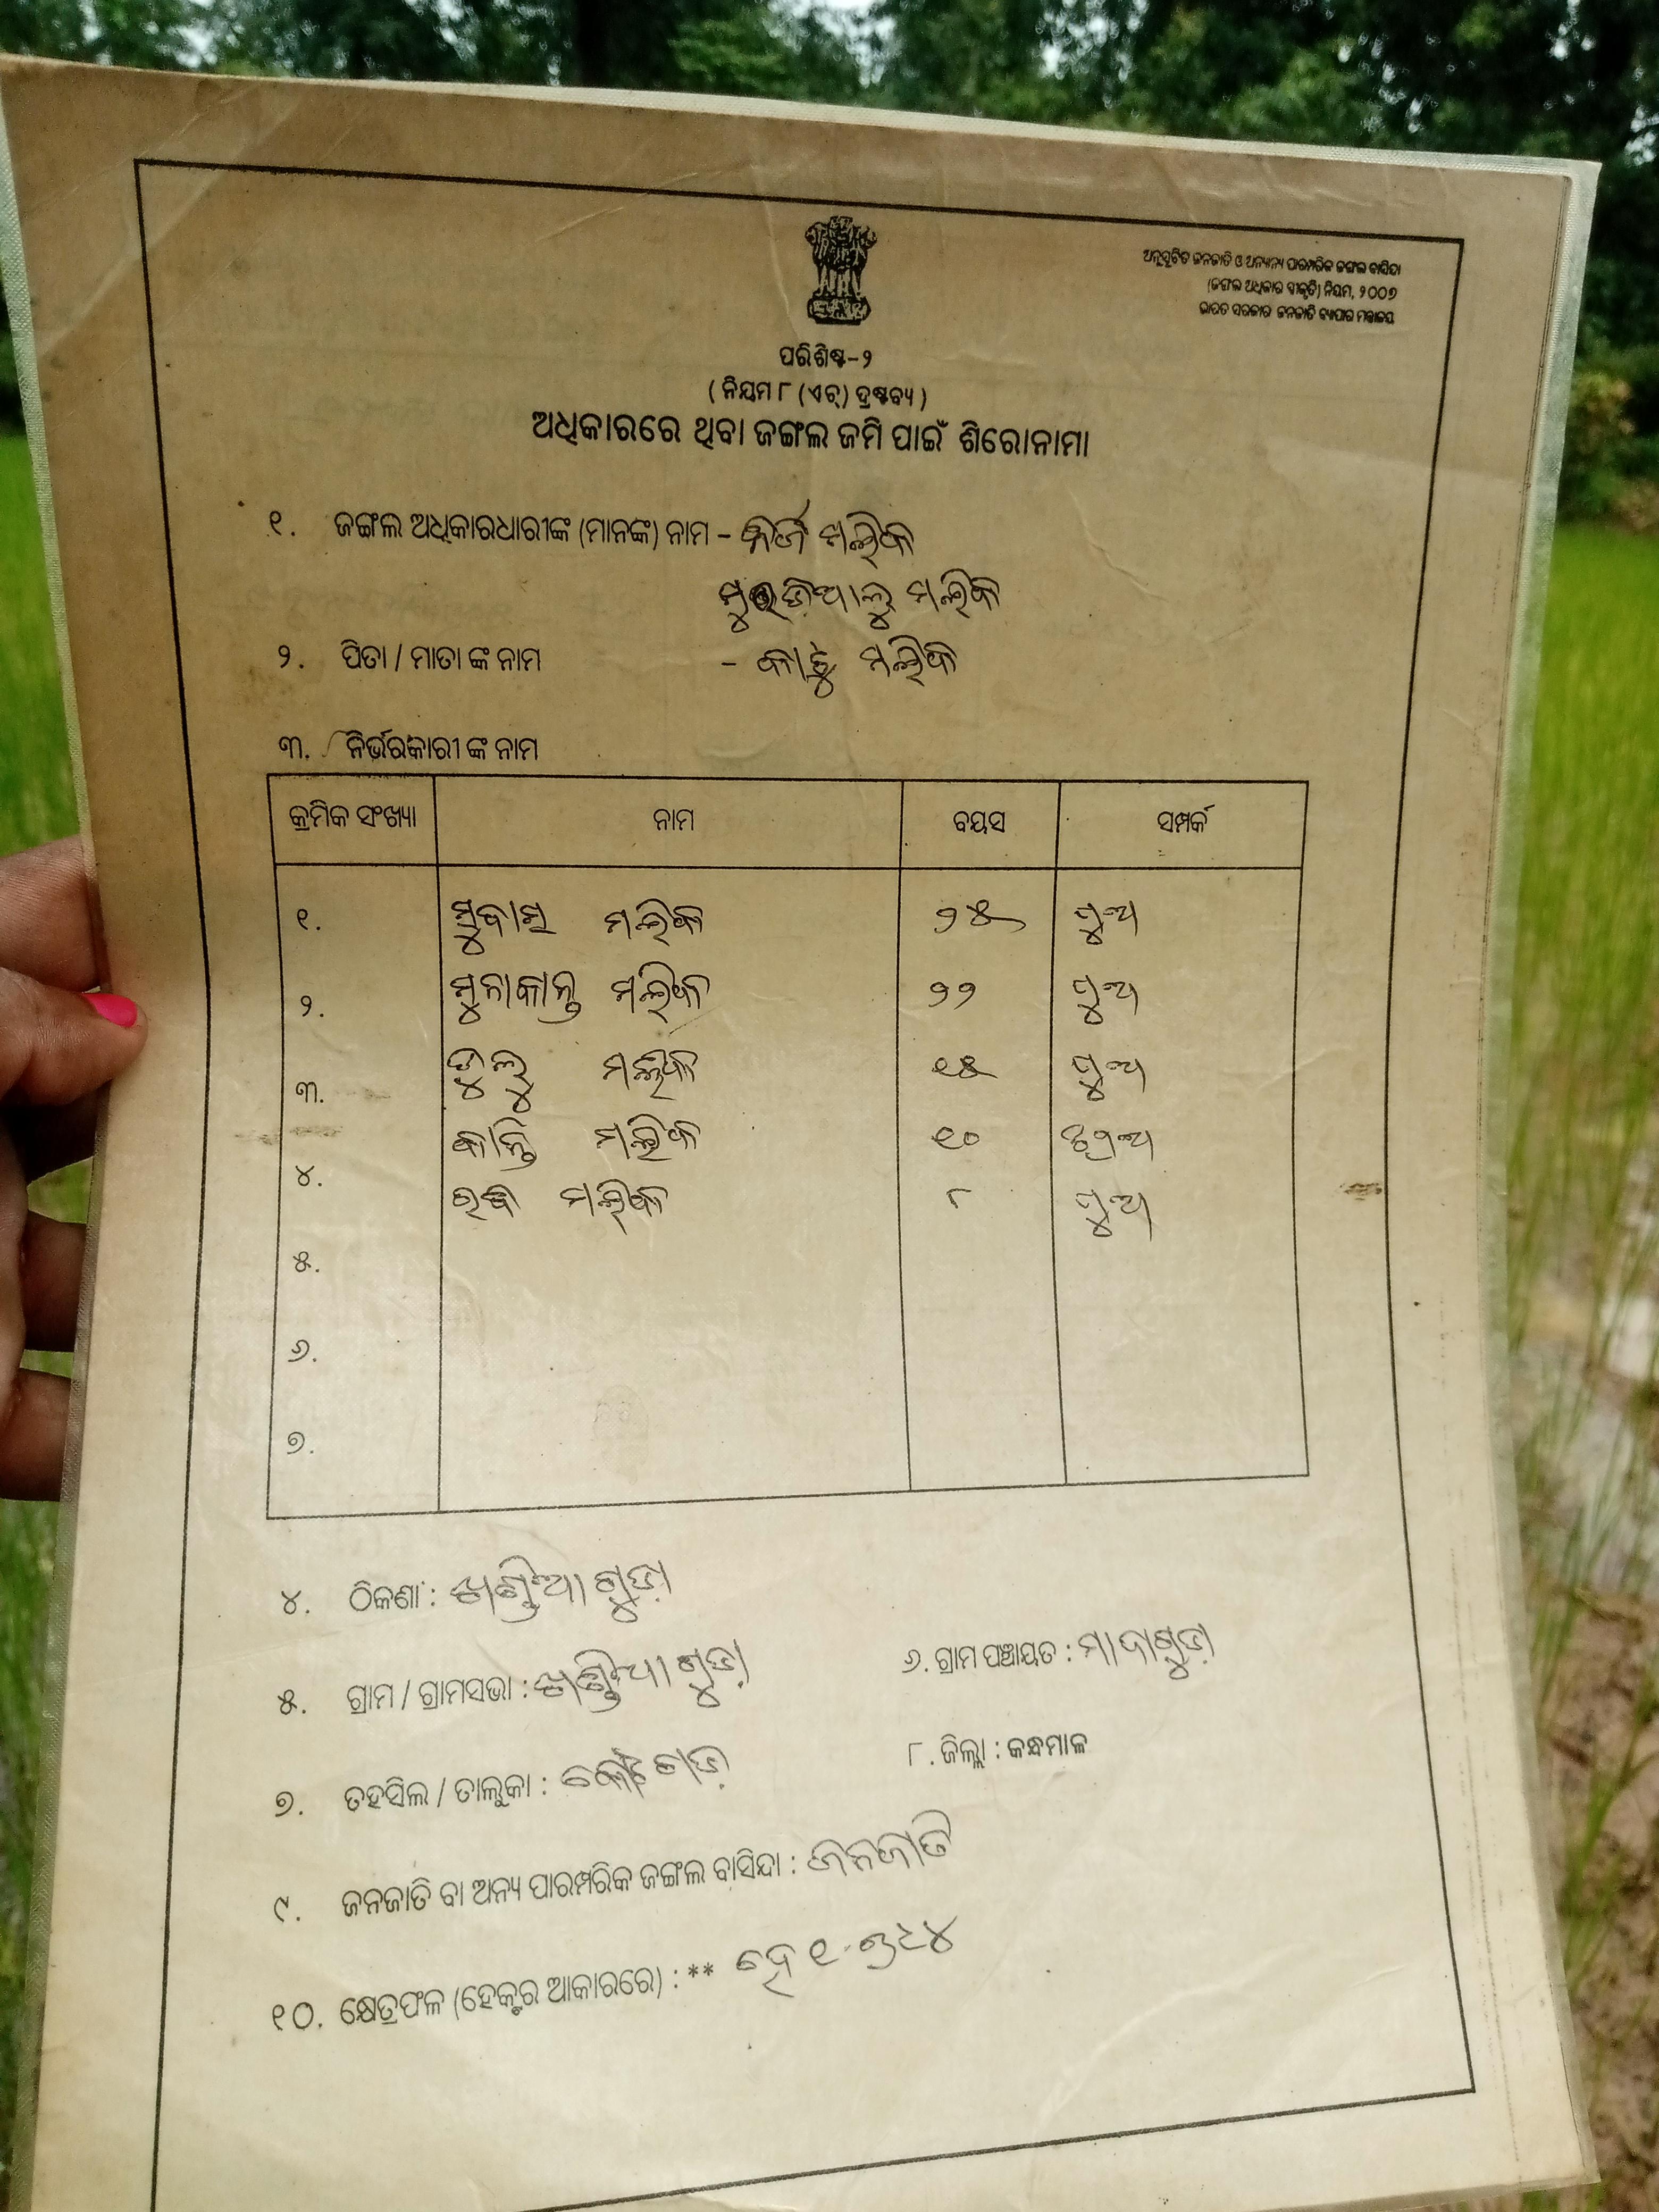 ଅନୁସୂଚିତ ଜନଜାତି ଓ ଅନ୍ୟାନ୍ୟ ପାରମ୍ପରିକ ଜଙ୍ଗଲ ବାସିନ୍ଦା
(ଜଙ୍ଗଲ ଅଧିକାର ସ୍ୱୀକୃତି) ନିୟମ, ୨୦୦୭
ଭାରତ ସରକାର ଜନଜାତି ବ୍ୟାପାର ମନ୍ତ୍ରାଳୟ
ପରିଶିଷ୍ଟ-୨
( ନିୟମ ୮ (ଏଚ୍) ଦ୍ରଷ୍ଟବ୍ୟ )
ଅଧିକାରରେ ଥିବା ଜଙ୍ଗଲ ଜମି ପାଇଁ ଶିରୋନାମା
୧. ଜଙ୍ଗଲ ଅଧିକାରଧାରୀଙ୍କ (ମାନଙ୍କ) ନାମ - ମଲ୍ଲିକ
ମଲ୍ଲିକ
୨. ପିତା / ମାତା ଙ୍କ ନାମ - ମଲ୍ଲିକ
୩. ନିର୍ଭରକାରୀ ଙ୍କ ନାମ
କ୍ରମିକ ସଂଖ୍ୟା ନାମ ବୟସ ସମ୍ପର୍କ
୧. ସୁବାସ ମଲ୍ଲିକ ୨୫ ପୁଅ
୨. ମୁନାକାନ୍ତ ମଲ୍ଲିକ ୨୨ ପୁଅ
୩. ଡୁଲୁ ମଲ୍ଲିକ ୧୫ ପୁଅ
୪. କାନ୍ତି ମଲ୍ଲିକ ୧୦ ଝିଅ
ମଲ୍ଲିକ ୮ ପୁଅ
୫.
୬.
୭.
୪. ଠିକଣା : ଖଣ୍ଡିଆଗୁଡ଼ା
୫. ଗ୍ରାମ / ଗ୍ରାମସଭା : ଖଣ୍ଡିଆଗୁଡ଼ା ୬. ଗ୍ରାମ ପଞ୍ଚାୟତ :
୭. ତହସିଲ / ତାଲୁକା : କୋଟଗଡ଼ ୮. ଜିଲ୍ଲା : କନ୍ଧମାଳ
୯. ଜନଜାତି ବା ଅନ୍ୟ ପାରମ୍ପରିକ ଜଙ୍ଗଲ ବାସିନ୍ଦା : ଜନଜାତି
୧୦. କ୍ଷେତ୍ରଫଳ (ହେକ୍ଟର ଆକାରରେ) : ** ହେ